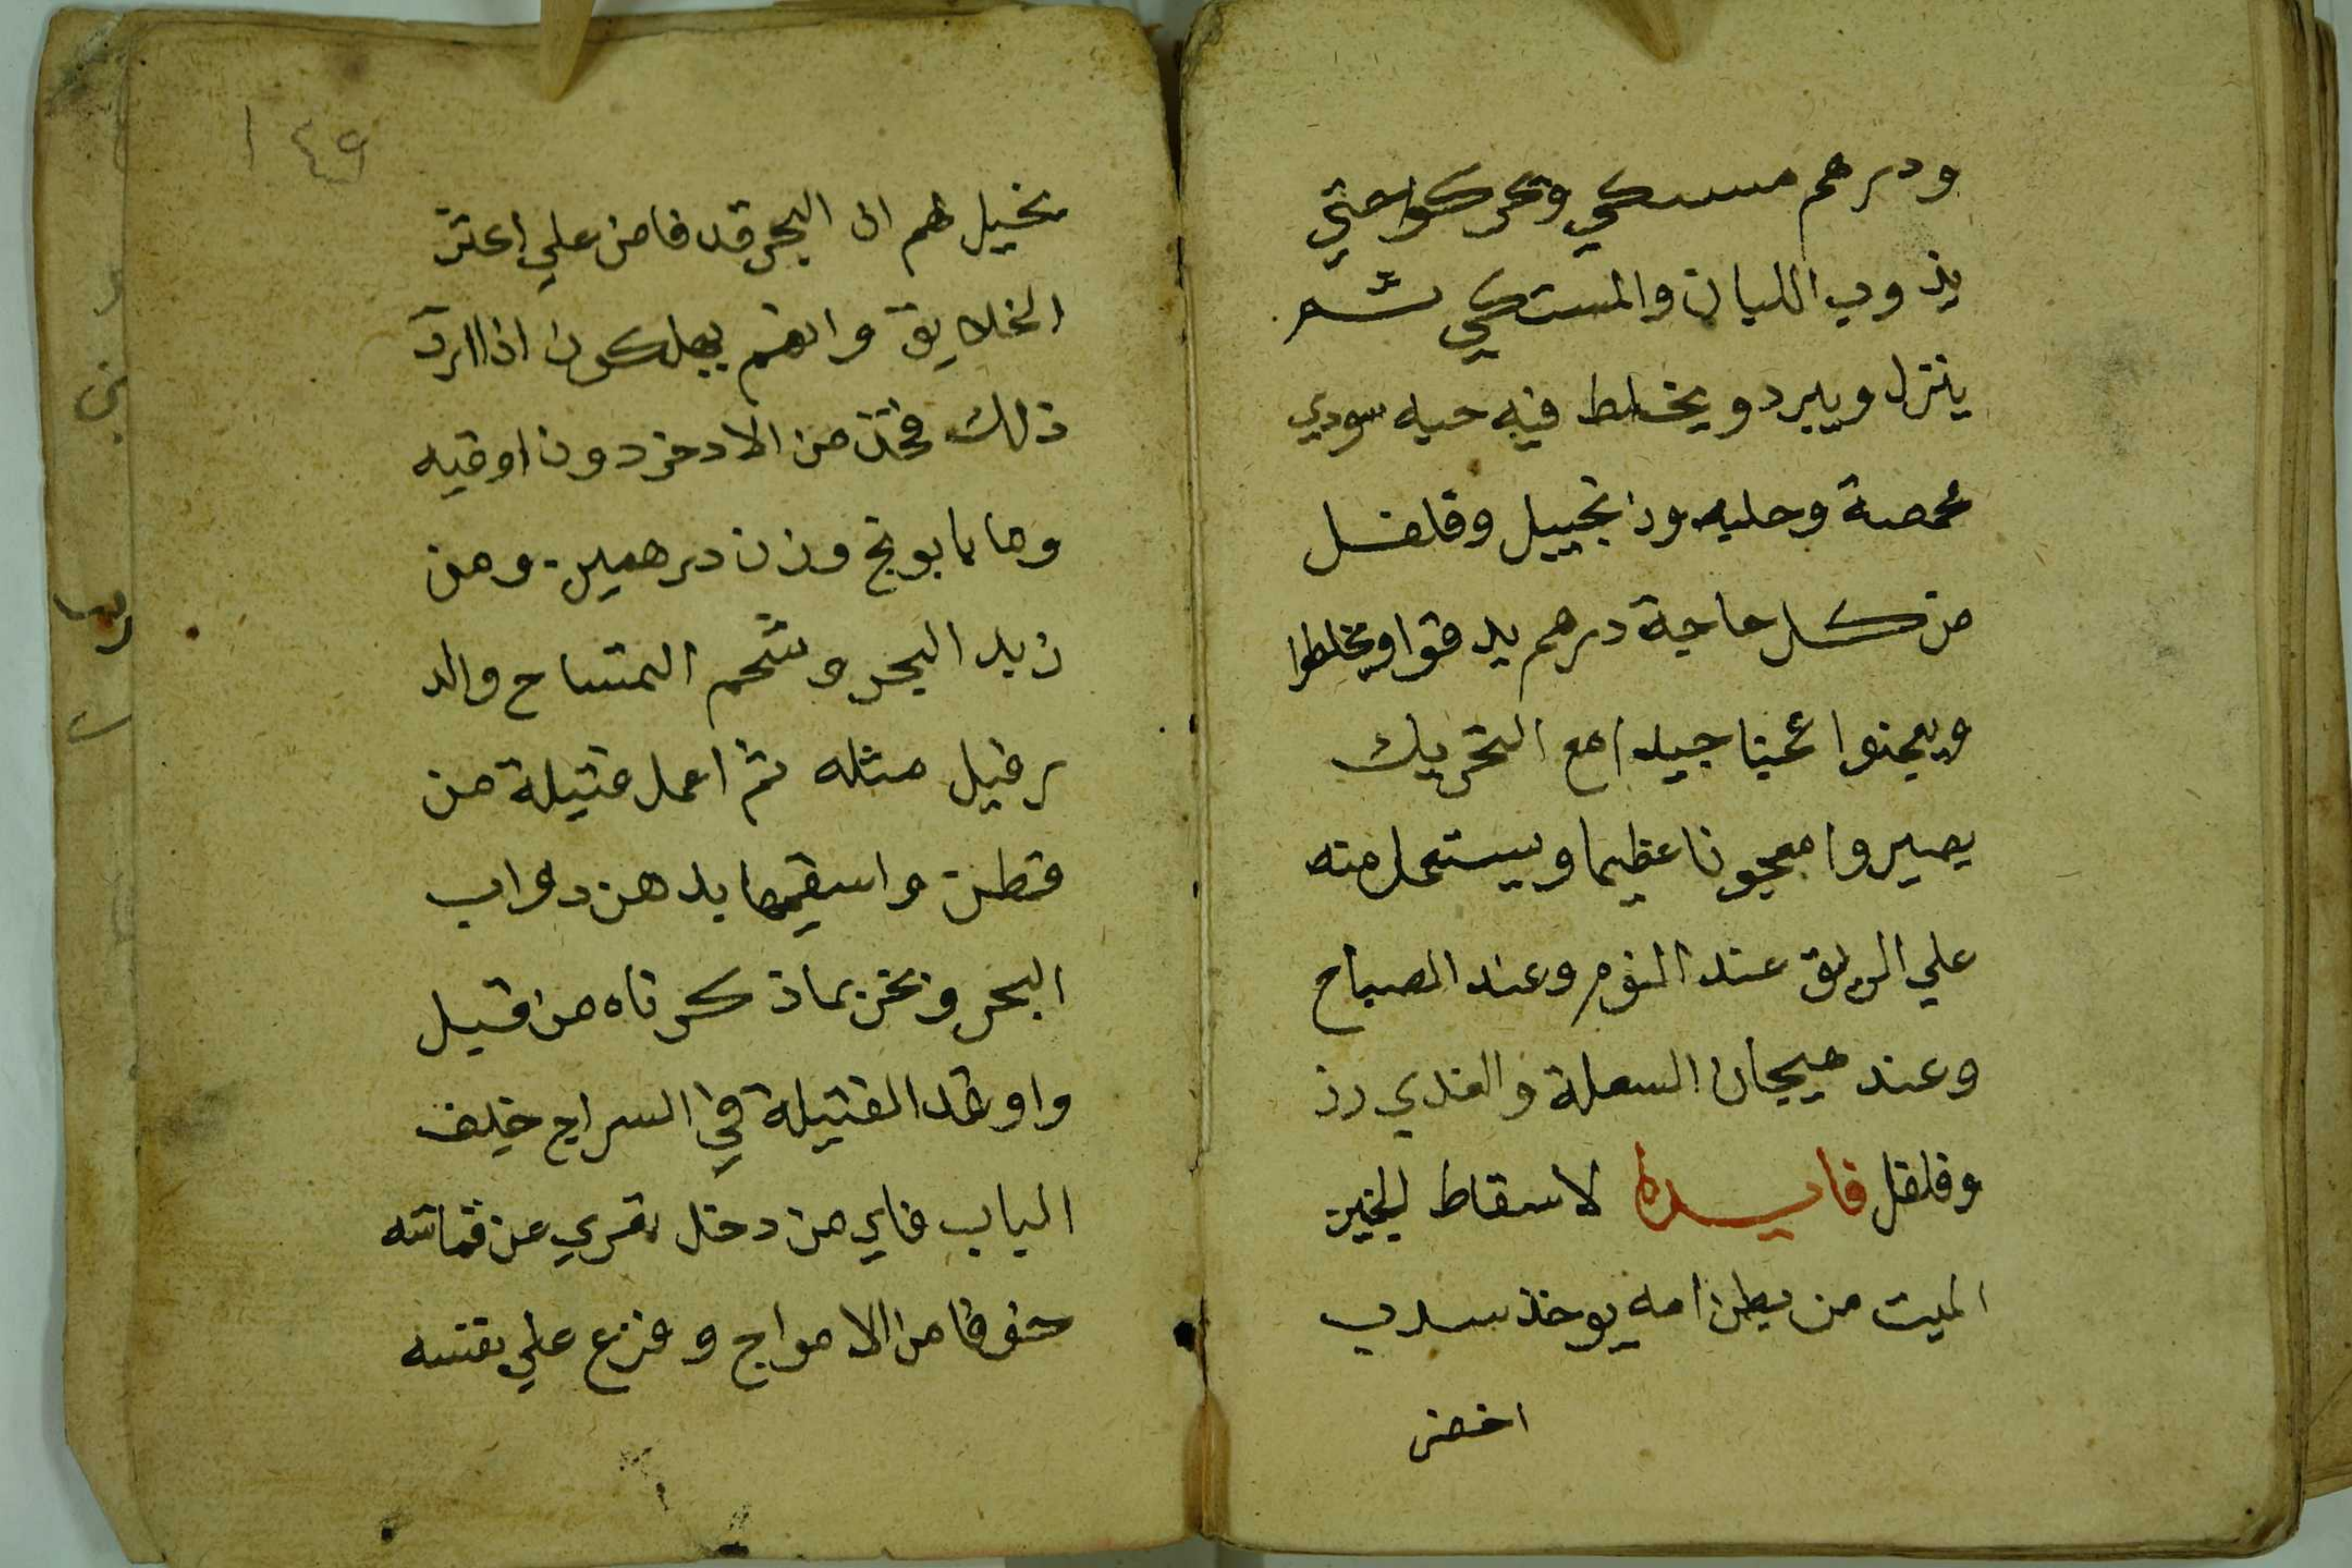 ودرهم مستكي وتحركوا حتي
يذوب اللبان والمستكي ثم
ينزل ويبرد ويخلط فيه حبه سودي
محمصة وحلبه وزنجبيل وفلفل
من كل حاجة درهم يدقوا ويخلطوا
ويعجنوا عجنا جيدا مع التحريك
يصيروا معجونا عظيما ويستعمل منه
علي الريق عند النوم وعند الصباح
وعند هيجان السعلة والغدي رز
وفلفل فايده لاسقاط الجنين
الميت من بطن امه يوخذ سدب
اخضر
١٤٩
تخيل لهم ان البحر قد فاض علي
الخلايق وانهم يهلكون اذا اردت
ذلك فخذ من الادخر دون اوقيه
وماء بابونج وزن درهمين ومن
زبد البحر وشحم التمساح والد
رفيل مثله ثم اعمل فتيلة من
قطن واسقيها بدهن دواب
البحر وبخر بما ذكرناه من قبل
واوقد الفتيلة في السراج خلف
الباب فاي من دخل تعري عن قماشه
خوفا من الامواج وفزع علي نفسه